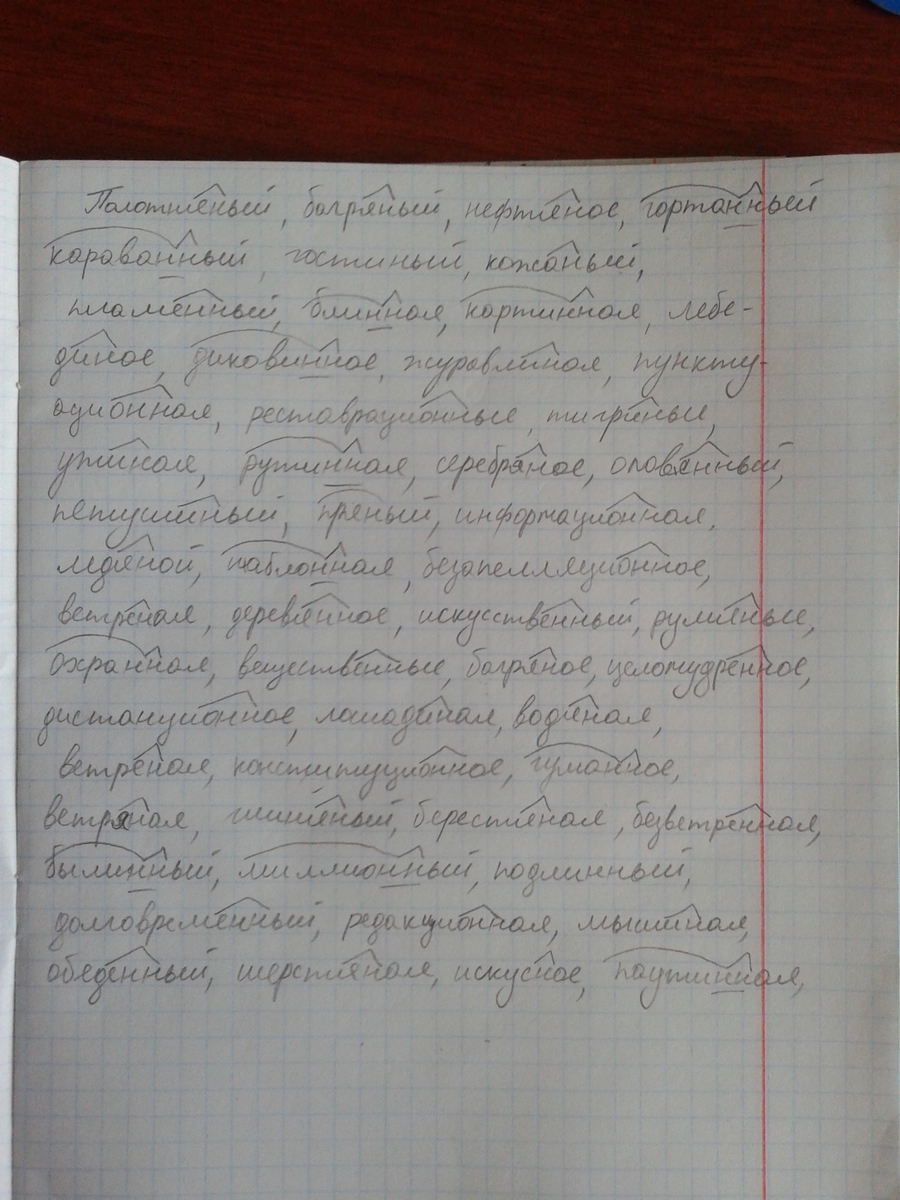 Полотняный, багряный, нефтяное, гортанный
караванный, гостиный, кожаный,
пламенный, блинная, картинная, лебе-
диное, диковинное, журавлиная, пункту-
ационная, реставрационные, тигриные,
ужиная, рутинная, серебряное, оловянный,
петушиный, пряный, информационная,
ледяной, шаблонная, безапелляционное,
ветреная, деревянное, искусственный, румяные,
охранная, вещественные, багряное, целомудренное,
дистанционное, лошадиная, водяная,
ветреная, конституционное, гуманное,
ветряная, глиняный, берестяная, безветренная,
былинный, миллионный, подлинный,
долговременный, редакционная, мышиная,
обеденный, шерстяная, искусное, паутинная,